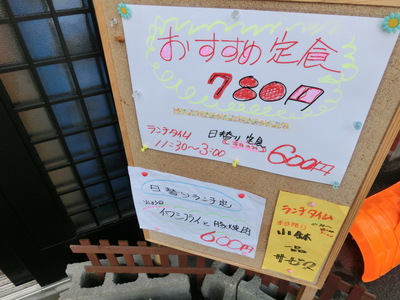 おすすめ定食
780円
ランチタイム
11:30~3:00
日替り定食
600円
日替りランチ定
イワシフライと
600円
ランチタイム
小鉢
一品
サービス